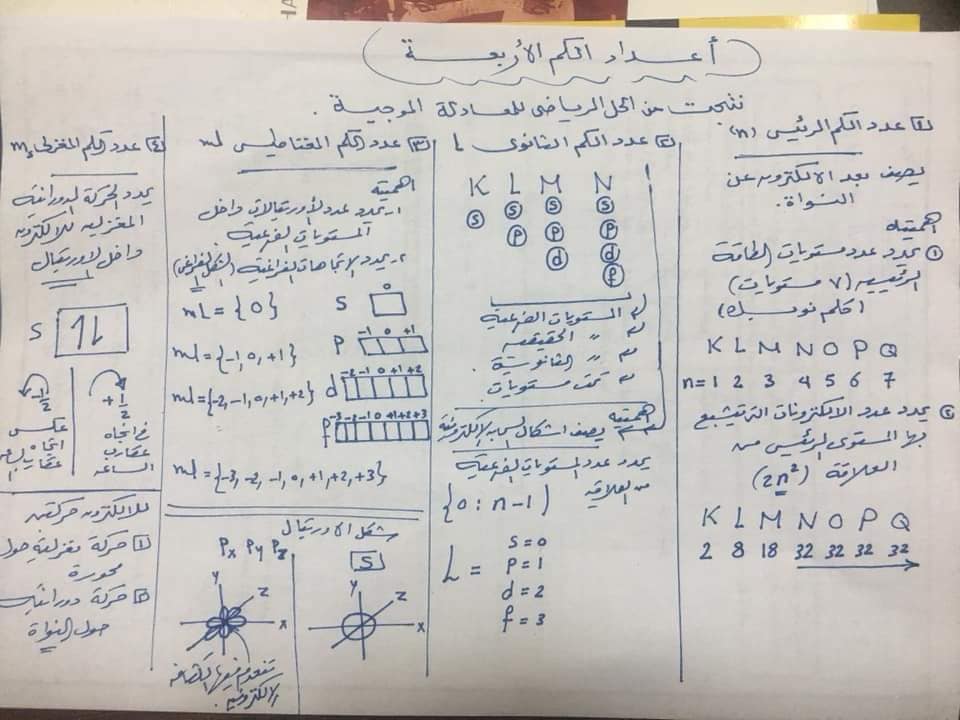 أعداد الكم الأربعة
نتجت من الحل الرياضى للمعادلة الموجية.
١ عدد الكم الرئيسى (n)
يصف بعد الالكترون عن
النواة.
اهميته
① يحدد عدد مستويات الطاقة
الرئيسيه (٧ مستويات)
K L M N O P Q
n=1 2 3 4 5 6 7
② يحدد عدد الالكترونات التى يتشبع
بها المستوى الرئيسى من
العلاقة (2n²)
K L M N O P Q
2 8 18 32 32 32 32
٢ عدد الكم الثانوى L
K L M N
s s s s
p p p
d d
f
المستويات الفرعية
〃 الحقيقيه
〃 الثانوية
تحت مستويات
اهميته يصف اشكال السحابه الإلكترونية
يحدد عدد المستويات الفرعية
من العلاقه
{0 : n-1)
L =
s = 0
p = 1
d = 2
f = 3
٣ عدد الكم المغناطيسى ml
اهميته
١- يحدد عدد الأوربيتالات داخل
المستويات الفرعية.
٢- يحدد الاتجاهات الفراغية (الشكل الفراغى)
ml = {0} S 0
ml = {-1, 0, +1} p -1 0 +1
ml = {-2, -1, 0, +1, +2} d -2 -1 0 +1 +2
f -3 -2 -1 0 +1 +2 +3
ml = {-3, -2, -1, 0, +1, +2, +3}
شكل الاوربيتال
S
y z x
Px Py Pz
y z x
تنعدم فيها الكثافه
الالكترونيه.
٤ عدد الكم المغزلى ms
يحدد الحركة الدورانية
المغزليه للالكترون
داخل الاوربيتال
S 1L
+1/2
فى اتجاه
عقارب
الساعه
-1/2
عكس
اتجاه
عقارب
للالكترون حركتين
١ حركة مغزلية حول
محورة
٢ حركة دورانية
حول النواة